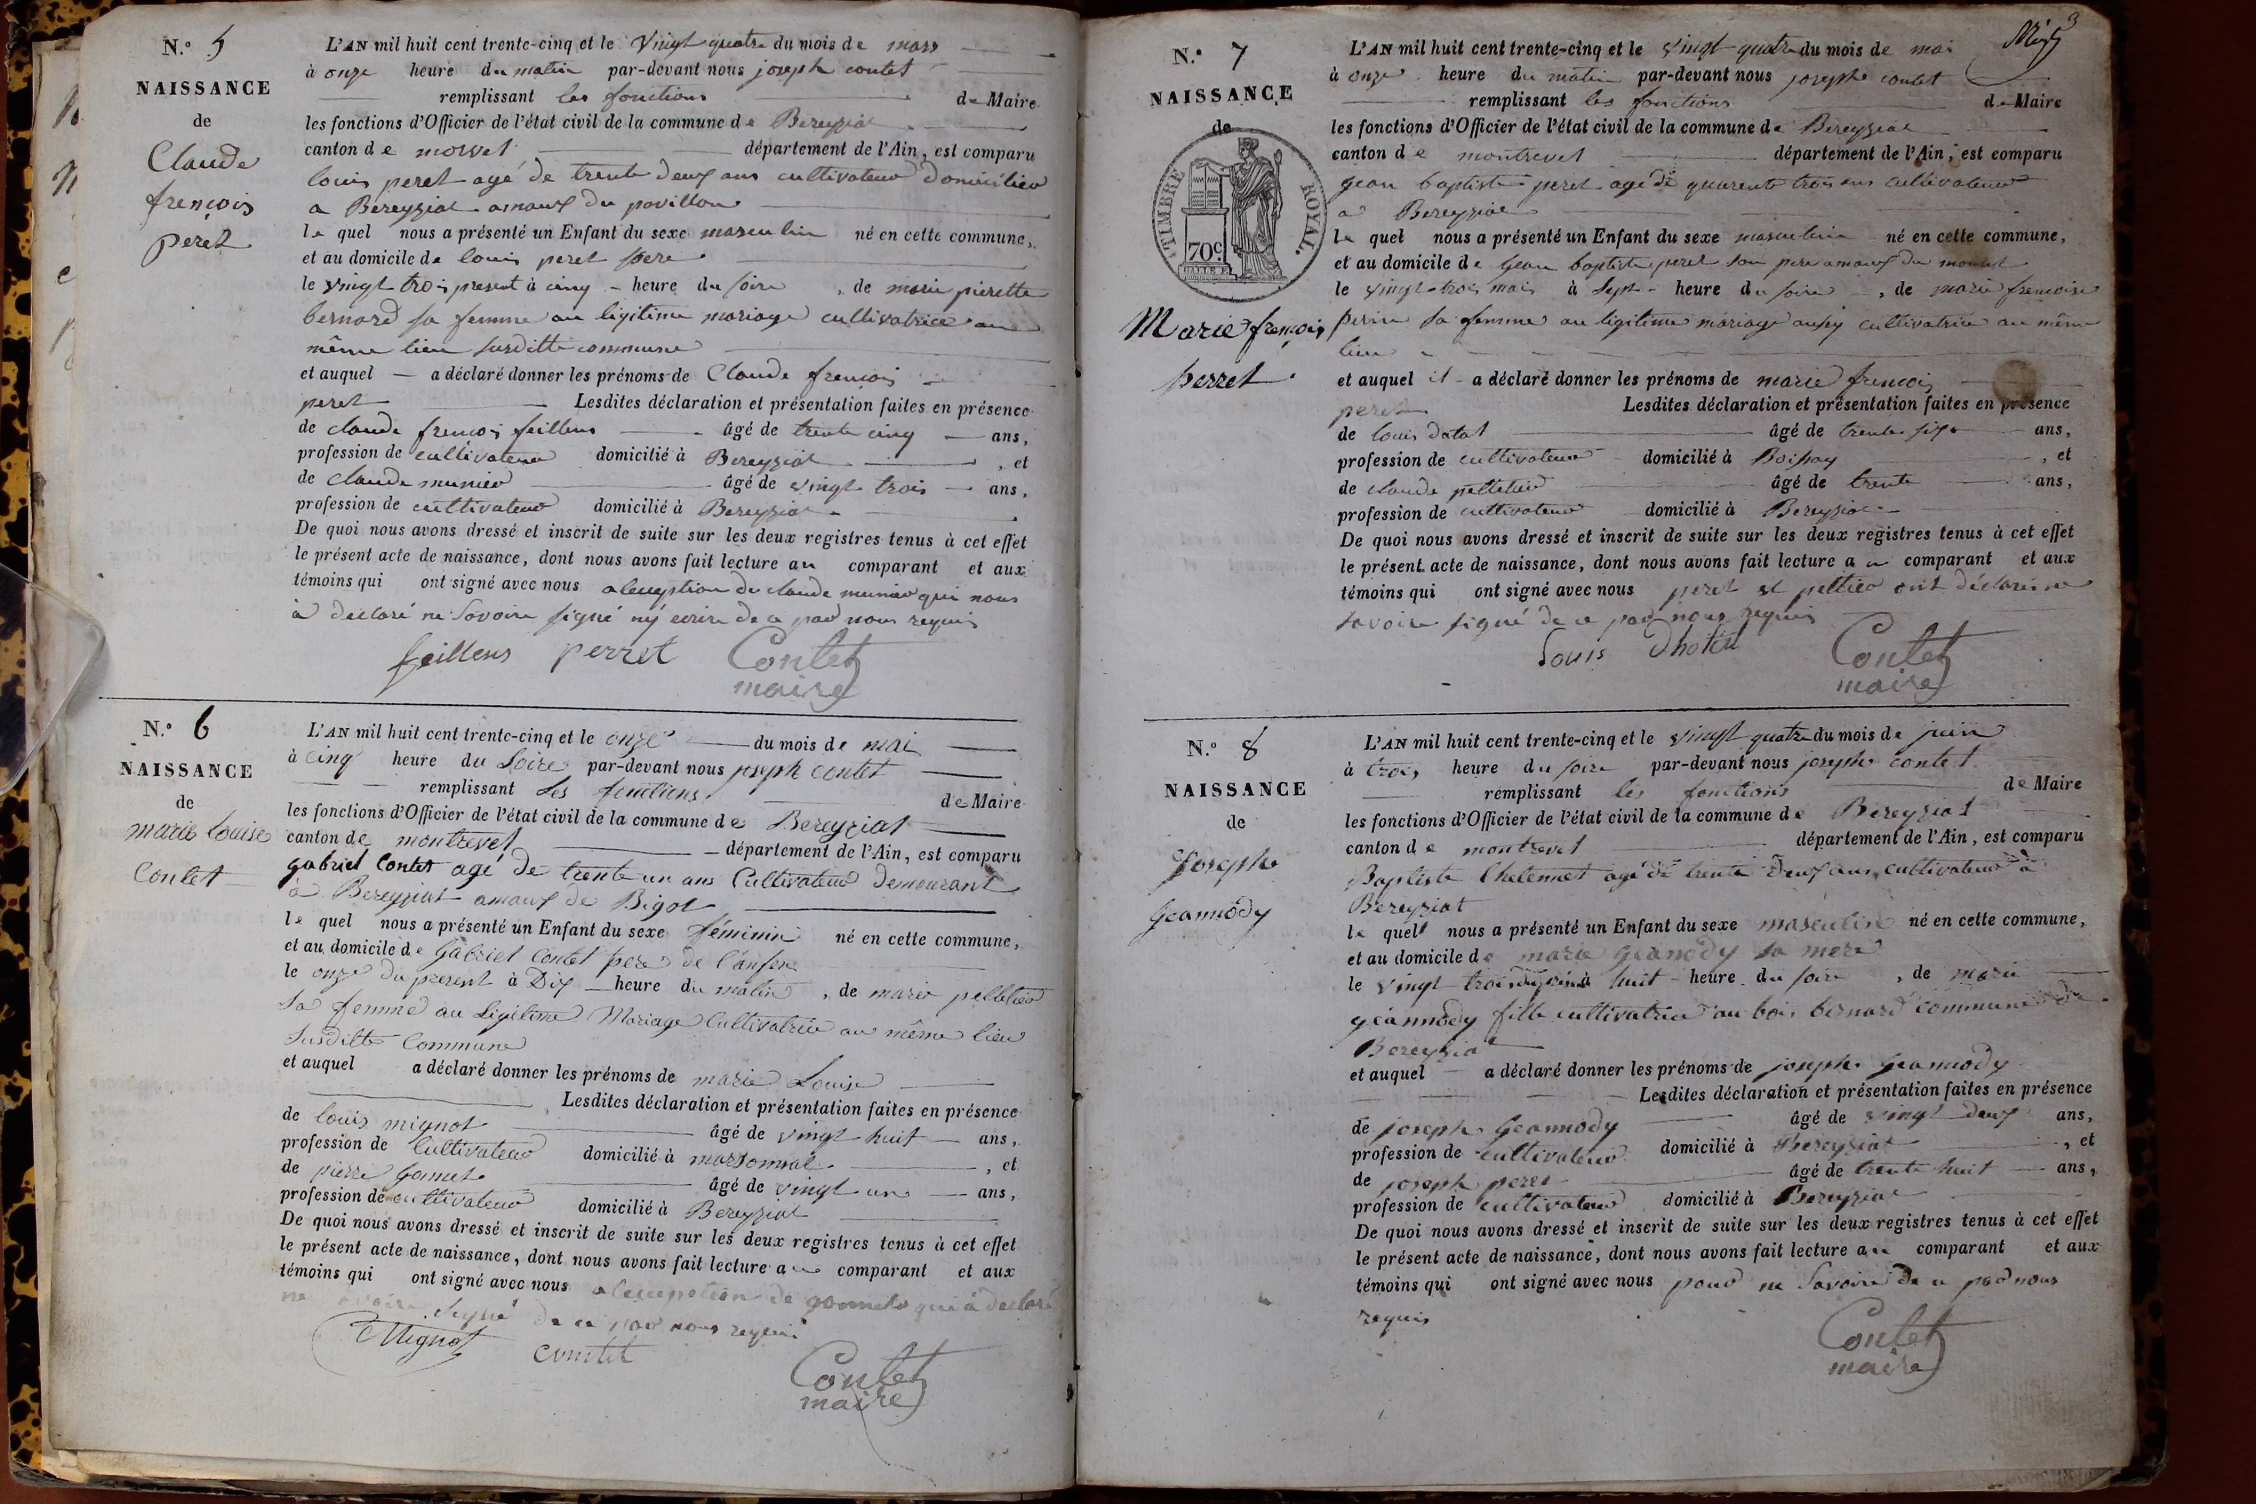 N.° 5
NAISSANCE
de
Claude
françois
peret
L'AN mil huit cent trente-cinq et le vingt quatre du mois de mars
à onze heure du matin par-devant nous joseph contet
remplissant les fonctions de Maire
les fonctions d'Officier de l'état civil de la commune de Bereyziat
canton de département de l'Ain, est comparu
louis peret agé de trente deux ans cultivateur domicilier
a Bereyziat amaux du pavillon
le quel nous a présenté un Enfant du sexe masculin né en cette commune,
et au domicile de louis peret pere
le vingt trois present à cinq heure du soire, de marie pierette
bernard sa femme au ligitime mariage cultivatrice au
même lieu susditte commune
et auquel a déclaré donner les prénoms de Claude françois
peret Lesdites déclaration et présentation faites en présence
de claude françois feillens âgé de trente cinq ans,
profession de cultivateur domicilié à Bereyziat, et
de claude munier âgé de vingt trois ans,
profession de cultivateur domicilié à Bereyziat
De quoi nous avons dressé et inscrit de suite sur les deux registres tenus à cet effet
le présent acte de naissance, dont nous avons fait lecture au comparant et aux
témoins qui ont signé avec nous aleception de claude munier qui nous
à declaré ne savoire signé ny ecrire de ce par nous requis
feillens perret Contet
maire
N.° 6
NAISSANCE
de
marie louise
Contet
L'AN mil huit cent trente-cinq et le onze du mois de mai
à cinq heure du soire par-devant nous joseph contet
remplissant les fonctions de Maire
les fonctions d'Officier de l'état civil de la commune de Bereyziat
canton de montrevel département de l'Ain, est comparu
gabriel Contet agé de trente un ans Cultivateur demeurant
à Bereyziat amaux de Bigot
le quel nous a présenté un Enfant du sexe féminin né en cette commune,
et au domicile de Gabriel Contet pere de l'anfent
le onze du present à Dix heure du matin, de marie pelletier
sa femme au Ligitime Mariage Cultivatrice au même lieu
susditte Commune
et auquel a déclaré donner les prénoms de marie Louise
Lesdites déclaration et présentation faites en présence
de louis mignot âgé de vingt huit ans,
profession de Cultivateur domicilié à marsonnat, et
de pierre gonnet âgé de vingt un ans,
profession de cultivateur domicilié à Bereyziat
De quoi nous avons dressé et inscrit de suite sur les deux registres tenus à cet effet
le présent acte de naissance, dont nous avons fait lecture au comparant et aux
témoins qui ont signé avec nous aleception de gonnet qui à declaré
ne savoire signé de ce par nous requis
Mignot contet Contet
maire
N.° 7
NAISSANCE
de
TIMBRE ROYAL.
70c
Marie françois
perret
L'AN mil huit cent trente-cinq et le vingt quatre du mois de mai
à onze heure du matin par-devant nous joseph contet
remplissant les fonctions de Maire
les fonctions d'Officier de l'état civil de la commune de Bereyziat
canton de montrevel département de l'Ain, est comparu
gean baptiste peret agé de quarente trois ans cultivateur
a Bereyziat
le quel nous a présenté un Enfant du sexe masculin né en cette commune,
et au domicile de gean baptiste peret son pere amaux du
le vingt trois mais à sept heure du soire, de marie françoise
perrin sa femme au ligitime mariage aussy cultivatrice au même
lieu
et auquel il a déclaré donner les prénoms de marie françois
peret Lesdites déclaration et présentation faites en présence
de louis datal âgé de trente six ans,
profession de cultivateur domicilié à Boissay, et
de claude pelletier âgé de trente ans,
profession de cultivateur domicilié à Bereyziat
De quoi nous avons dressé et inscrit de suite sur les deux registres tenus à cet effet
le présent acte de naissance, dont nous avons fait lecture au comparant et aux
témoins qui ont signé avec nous peret et peltier ont déclaré ne
savoire signé de ce par nous requis
Louis Dhotel Contet
maire
N.° 8
NAISSANCE
de
Joseph
geannody
L'AN mil huit cent trente-cinq et le vingt quatre du mois de juin
à trois heure du soire par-devant nous joseph contet
remplissant les fonctions de Maire
les fonctions d'Officier de l'état civil de la commune de Bereyziat
canton de montrevel département de l'Ain, est comparu
Baptiste Chetennet agé de trente deux ans cultivateur à
Bereyziat
le quel nous a présenté un Enfant du sexe masculin né en cette commune,
et au domicile de marie geannody sa mere
le vingt trois du à huit heure du soire, de marie
geannody fille cultivatrice au bois bernard commune de
Bereyziat
et auquel a déclaré donner les prénoms de joseph geannody
Lesdites déclaration et présentation faites en présence
de joseph geannody âgé de vingt deux ans,
profession de cultivateur domicilié à Bereyziat, et
de joseph peret âgé de trente huit ans,
profession de cultivateur domicilié à Bereyziat
De quoi nous avons dressé et inscrit de suite sur les deux registres tenus à cet effet
le présent acte de naissance, dont nous avons fait lecture au comparant et aux
témoins qui ont signé avec nous pour ne savoire de ce par nous
requis
Contet
maire